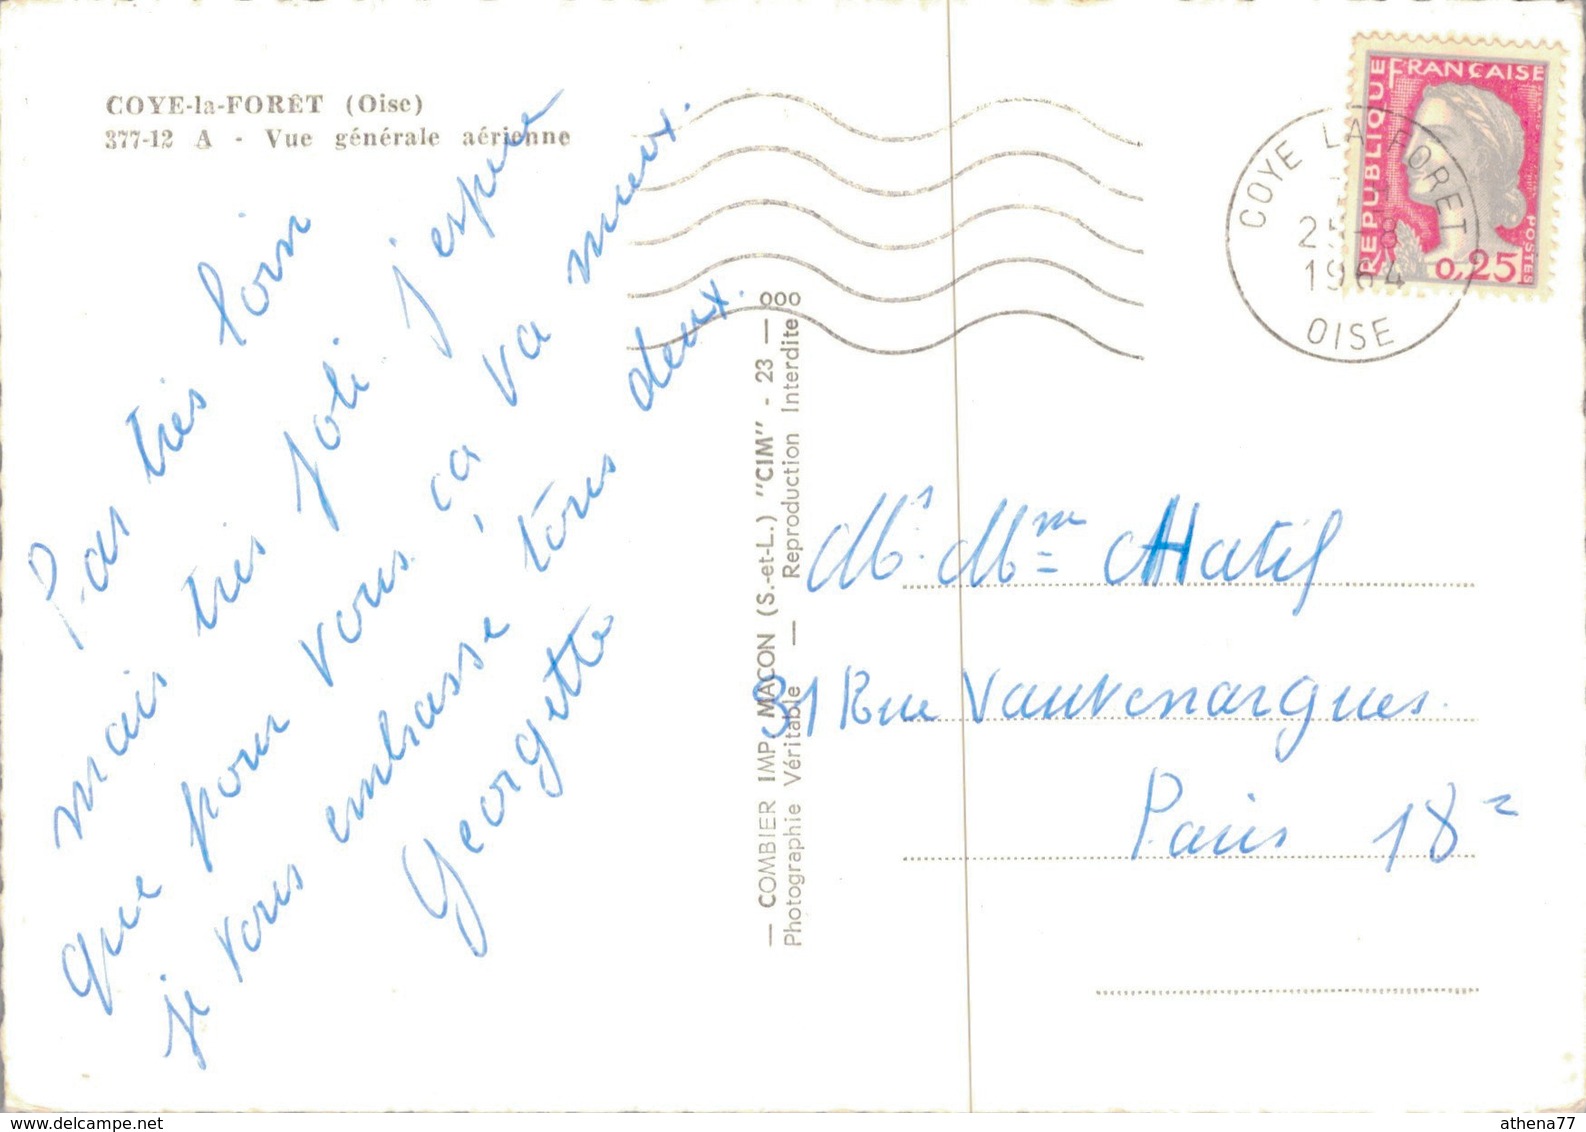 COYE-la-FORÊT (Oise)
377-12 A - Vue générale aérienne
Pas très loin
mais très joli. J'espère
que pour vous ça va mieux.
je vous embrasse tous deux.
Georgette
— COMBIER IMP. MACON (S.-et-L.) "CIM" - 23 — ooo
Photographie Véritable — Reproduction Interdite
RÉPUBLIQUE FRANÇAISE
POSTES
0,25
COYE LA FORET
25-8
1964
OISE
Mr. Mme Hatif
31 Rue Vauvenargues.
Paris 18e
www.delcampe.net
athena77